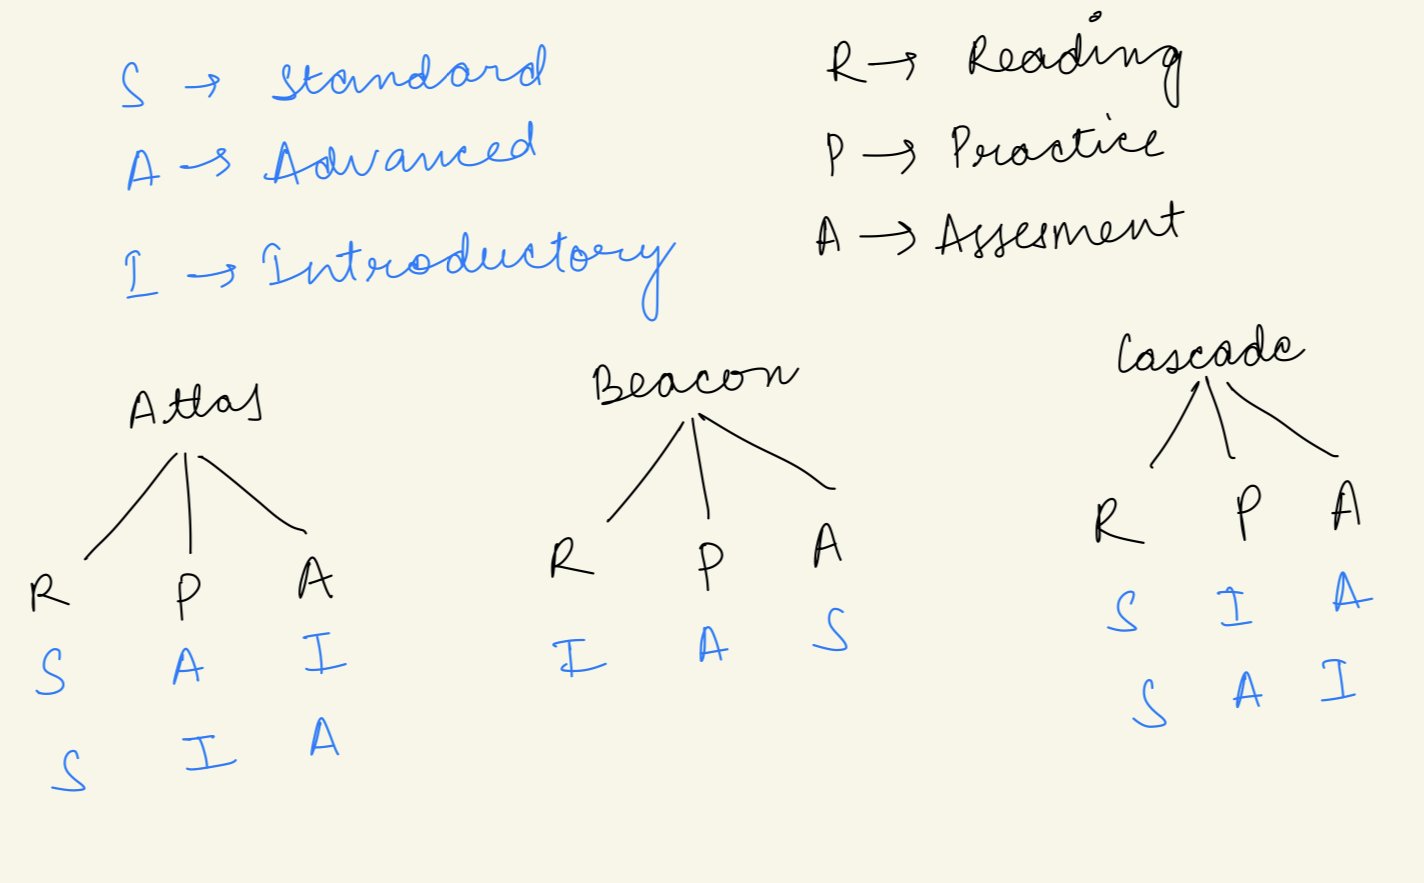 S → Standard
A → Advanced
I → Introductory
R → Reading
P → Practice
A → Assesment
Atlas
R P A
S A I
S I A
Beacon
R P A
I A S
Cascade
R P A
S I A
S A I